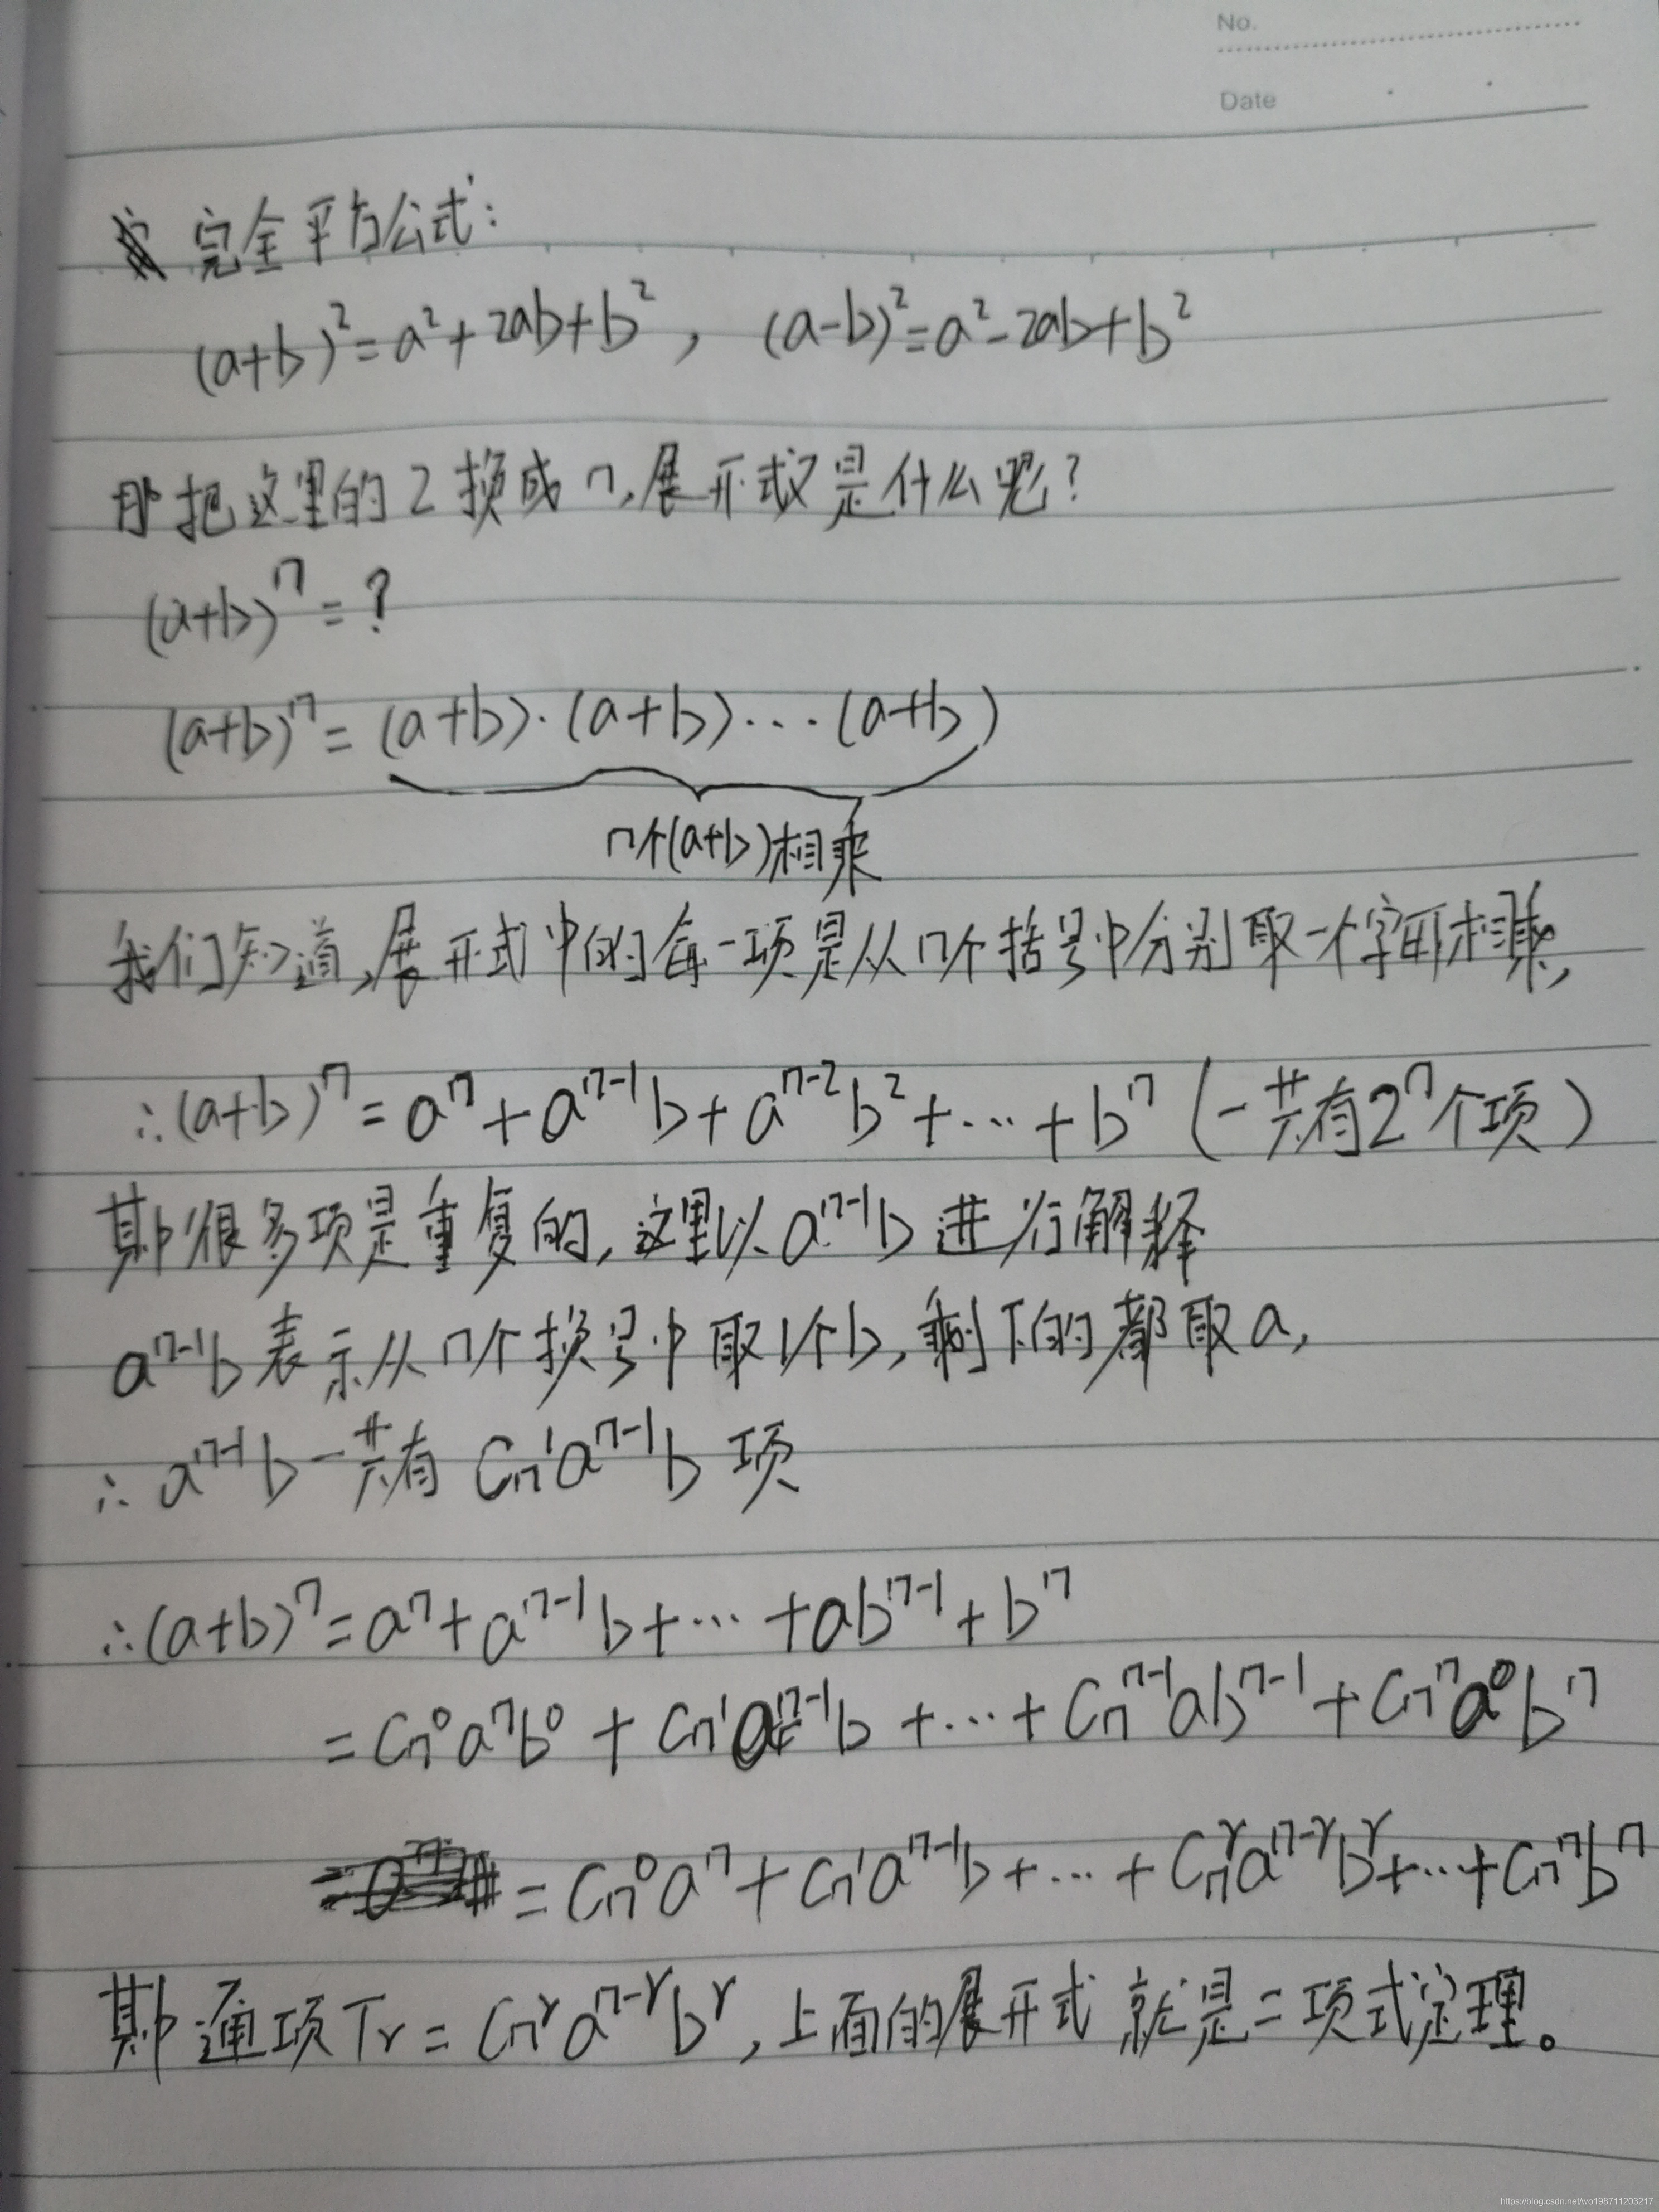 No.
Date
完全平方公式:
(a+b)²=a²+2ab+b², (a-b)²=a²-2ab+b²
那把这里的2换成n,展开式又是什么呢?
(a+b)ⁿ=?
(a+b)ⁿ=(a+b)·(a+b)···(a+b)
n个(a+b)相乘
我们知道,展开式中的每一项是从n个括号中分别取一个字母相乘,
∴(a+b)ⁿ=aⁿ+aⁿ⁻¹b+aⁿ⁻²b²+···+bⁿ(一共有2ⁿ个项)
其中很多项是重复的,这里以aⁿ⁻¹b进行解释
aⁿ⁻¹b表示从n个换号中取1个b,剩下的都取a,
∴aⁿ⁻¹b一共有Cn¹aⁿ⁻¹b项
∴(a+b)ⁿ=aⁿ+aⁿ⁻¹b+···+abⁿ⁻¹+bⁿ
=Cn⁰aⁿb⁰+Cn¹aⁿ⁻¹b+···+Cnⁿ⁻¹abⁿ⁻¹+Cnⁿa⁰bⁿ
=Cn⁰aⁿ+Cn¹aⁿ⁻¹b+···+Cnʳaⁿ⁻ʳbʳ+···+Cnⁿbⁿ
其中通项Tr=Cnʳaⁿ⁻ʳbʳ,上面的展开式就是二项式定理。
https://blog.csdn.net/wo198711203217